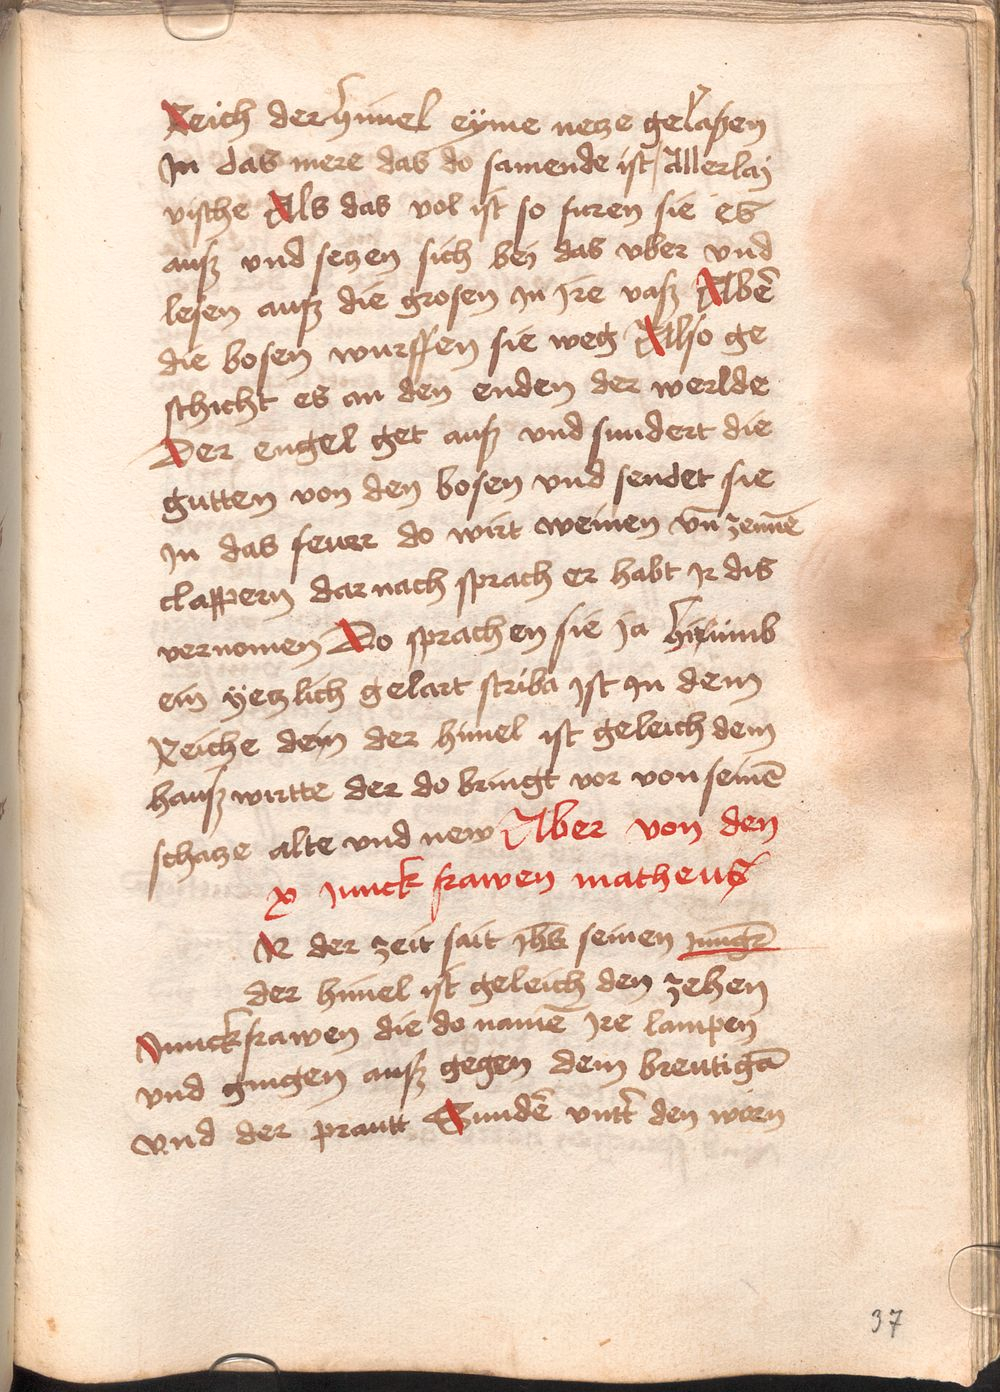 Reich der himel eyme netze gelaßen
In das mere das do samende ist Allerlaj
vische Als das vol ist so furen sie es
auß vnd setzen sich bej das vber vnd
lesen auß die grosen In Ire vaß Aber̄
die bosen wurffen sie weg Also ge
schicht es an den enden der werlde
Der engel get auß vnd sundert die
gutten von den bosen vnd sendet sie
In das feuer do wirt weinen vn̄ zennē
clappern dar nach sprach er habt Ir dis
vernomen Do sprachen sie Ja
ein yetzlich gelart scriba Ist In dem
Reiche dem der himel ist geleich dem
haußwirtte der do bringt vor von seinē
schatze alte vnd new Aber von den
x Junckfrawen matheus
der zeit sait Jhs̄ seinen Jungr̄
der himel ist geleich den zehen
Junckfrawen die do namē Ire lampen
vnd gingen auß gegen dem breutigā
vnd der prautt Sundē vntt̄ den worn
37